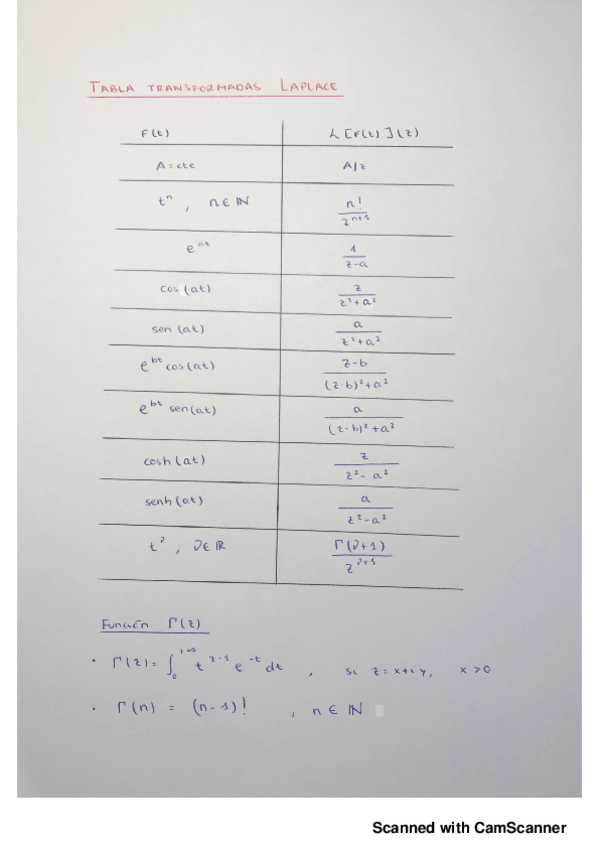 TABLA TRANSFORMADAS LAPLACE
F(t) L[F(t)](z)
A=cte A/z
t^n, n∈ℕ n!/z^{n+1}
e^{at} 1/(z-a)
cos(at) z/(z²+a²)
sen(at) a/(z²+a²)
e^{bt} cos(at) (z-b)/((z-b)²+a²)
e^{bt} sen(at) a/((z-b)²+a²)
cosh(at) z/(z²-a²)
senh(at) a/(z²-a²)
t^ν, ν∈ℝ Γ(ν+1)/z^{ν+1}
Función Γ(z)
· Γ(z)= ∫_0^{+∞} t^{z-1} e^{-t} dt , si z=x+iy, x>0
· Γ(n) = (n-1)! , n∈ℕ
Scanned with CamScanner